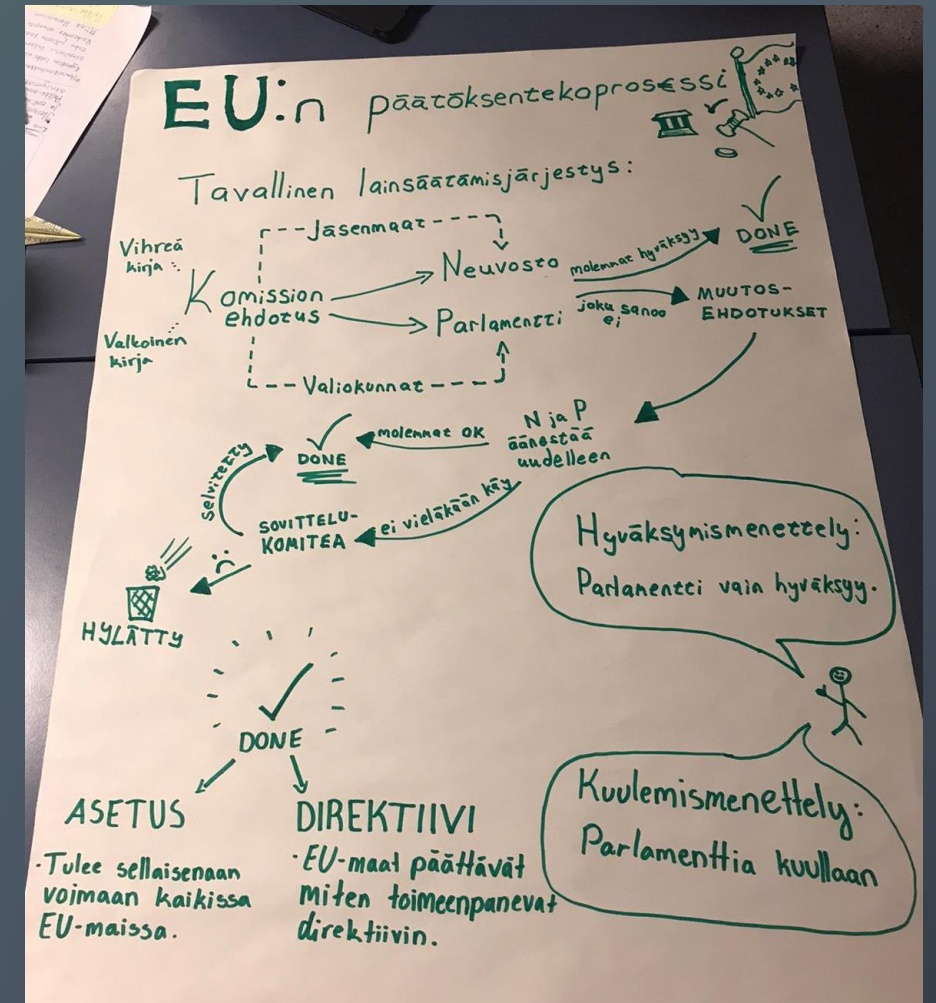 EU:n päätöksentekoprosessi
Tavallinen lainsäätämisjärjestys:
Vihreä
kirja
Valkoinen
kirja
Komission
ehdotus
Jäsenmaat
Valiokunnat
Neuvosto
Parlamentti
molemmat hyväksyy
DONE
joku sanoo
ei
MUUTOS-
EHDOTUKSET
N ja P
äänestää
uudelleen
molemmat OK
DONE
ei vieläkään käy
SOVITTELU-
KOMITEA
selvitetty
HYLÄTTY
Hyväksymismenettely:
Parlamentti vain hyväksyy.
DONE
ASETUS
·Tulee sellaisenaan
voimaan kaikissa
EU-maissa.
DIREKTIIVI
·EU-maat päättävät
miten toimeenpanevat
direktiivin.
Kuulemismenettely:
Parlamenttia kuullaan